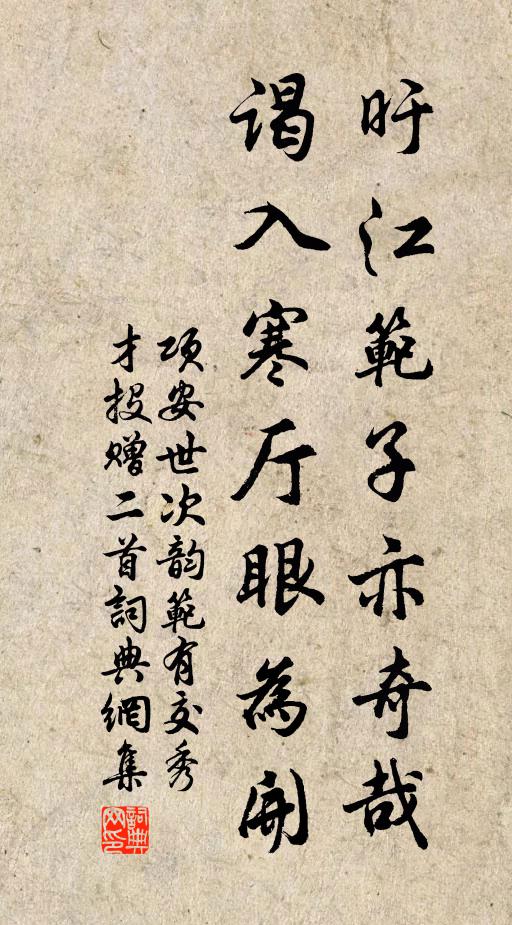 盱江範子亦奇哉
谒入寒厅眼為開
项安世次韵範有交秀
才投赠二首詞典網集
詞典
网印